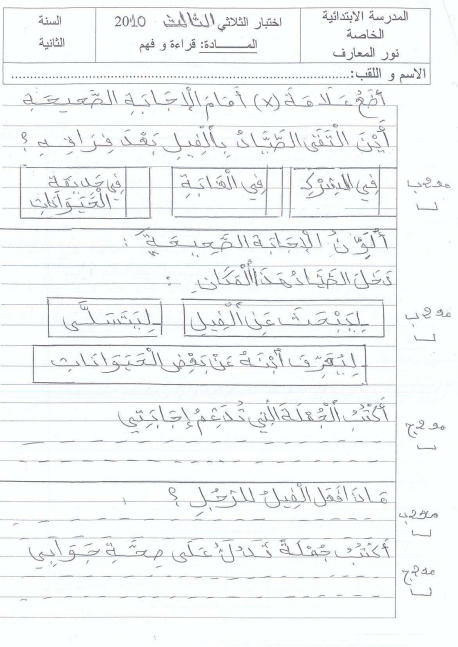 المدرسة الابتدائية
الخاصة
نور المعارف
اختبار الثلاثي الثالث 2010
المــــادة: قراءة و فهم
السنة
الثانية
الاسم و اللقب:
أَضَعُ عَلَامَةَ (x) أَمَامَ الْإِجَابَةِ الصَّحِيحَةِ
أَيْنَ الْتَقَى الصَّيَّادُ بِالْفِيلِ بَعْدَ فِرَاقِهِ ؟
فِي السِّرْكِ
فِي الْغَابَةِ
فِي حَدِيقَةِ
الْحَيَوَانَاتِ
مع2ب
أُلَوِّنُ الْإِجَابَةَ الصَّحِيحَةَ :
دَخَلَ الصَّيَّادُ هَذَا الْمَكَانَ :
لِيَبْحَثَ عَنِ الْفِيلِ
لِيَتَسَلَّى
مع2ب
لِيُعَرِّفَ ابْنَهُ عَنْ بَعْضِ الْحَيَوَانَاتِ
أَكْتُبُ الْجُمْلَةَ الَّتِي تُدَعِّمُ إِجَابَتِي
مع2ج
مَاذَا فَعَلَ الْفِيلُ لِلرَّجُلِ ؟
مع2ب
أَكْتُبُ جُمْلَةً تَدُلُّ عَلَى صِحَّةِ جَوَابِي
مع2ج